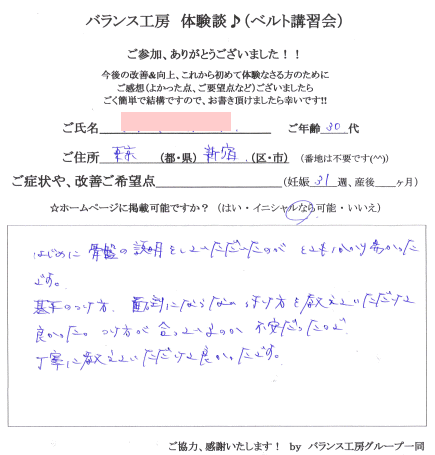 バランス工房 体験談♪(ベルト講習会)
ご参加、ありがとうございました!!
今後の改善&向上、これから初めて体験なさる方のために
ご感想(よかった点、ご要望点など)ございましたら
ごく簡単で結構ですので、お書き頂けましたら幸いです!!
ご氏名 ご年齢 30 代
ご住所 東京 (都・県) 新宿 (区・市) (番地は不要です(^^))
ご症状や、改善ご希望点 (妊娠 31 週、産後 ヶ月)
☆ホームページに掲載可能ですか? (はい・イニシャルなら可能・いいえ)
はじめに 骨盤の説明をしていただいたのが とても分かり易かった
です。
基本のつけ方、 にならない 方を教えていただけて
良かった。 つけ方が合っているのか 不安だったので
丁寧に教えていただけて良かったです。
ご協力、感謝いたします! by バランス工房グループ一同